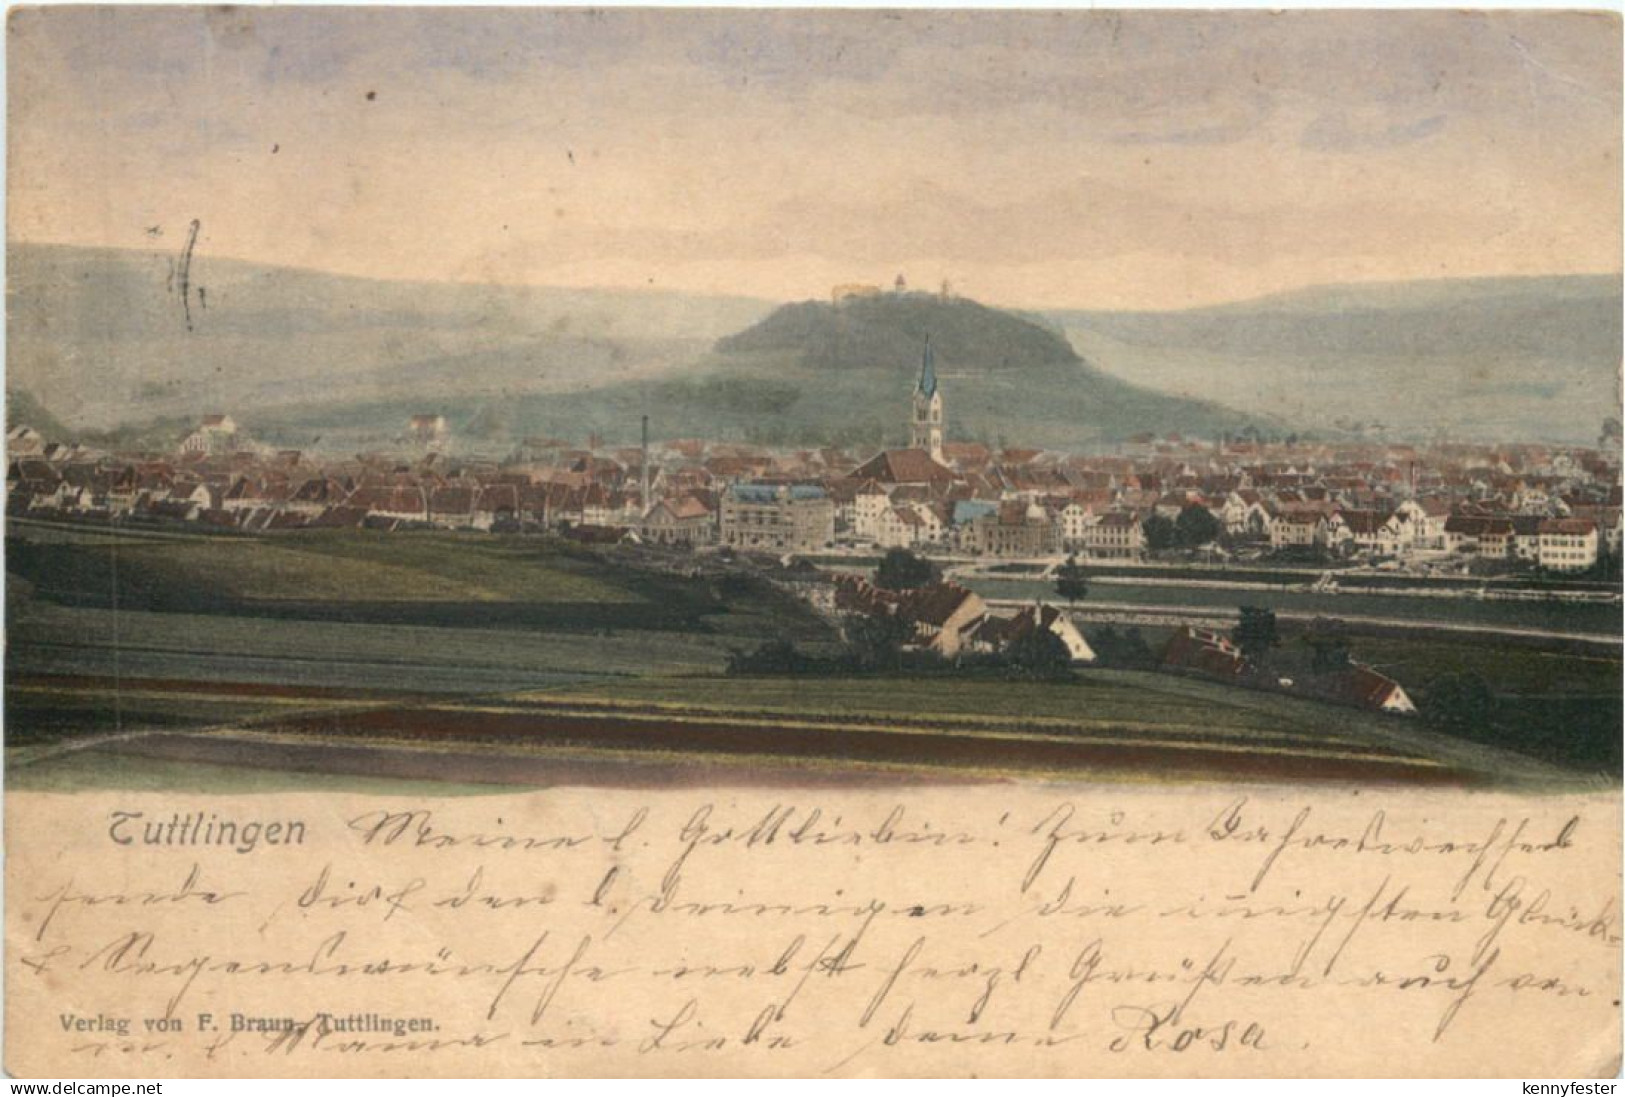 Tuttlingen Meine l. Gottliebin! Zum Jahreswechsel
sende dir & den l. deinigen die innigsten Glück-
& Segenswünsche nebst herzl Grüßen auch von
Verlag von F. Braun, Tuttlingen.
m. l. Mama in Liebe deine Rosa.
www.delcampe.net
kennyfester